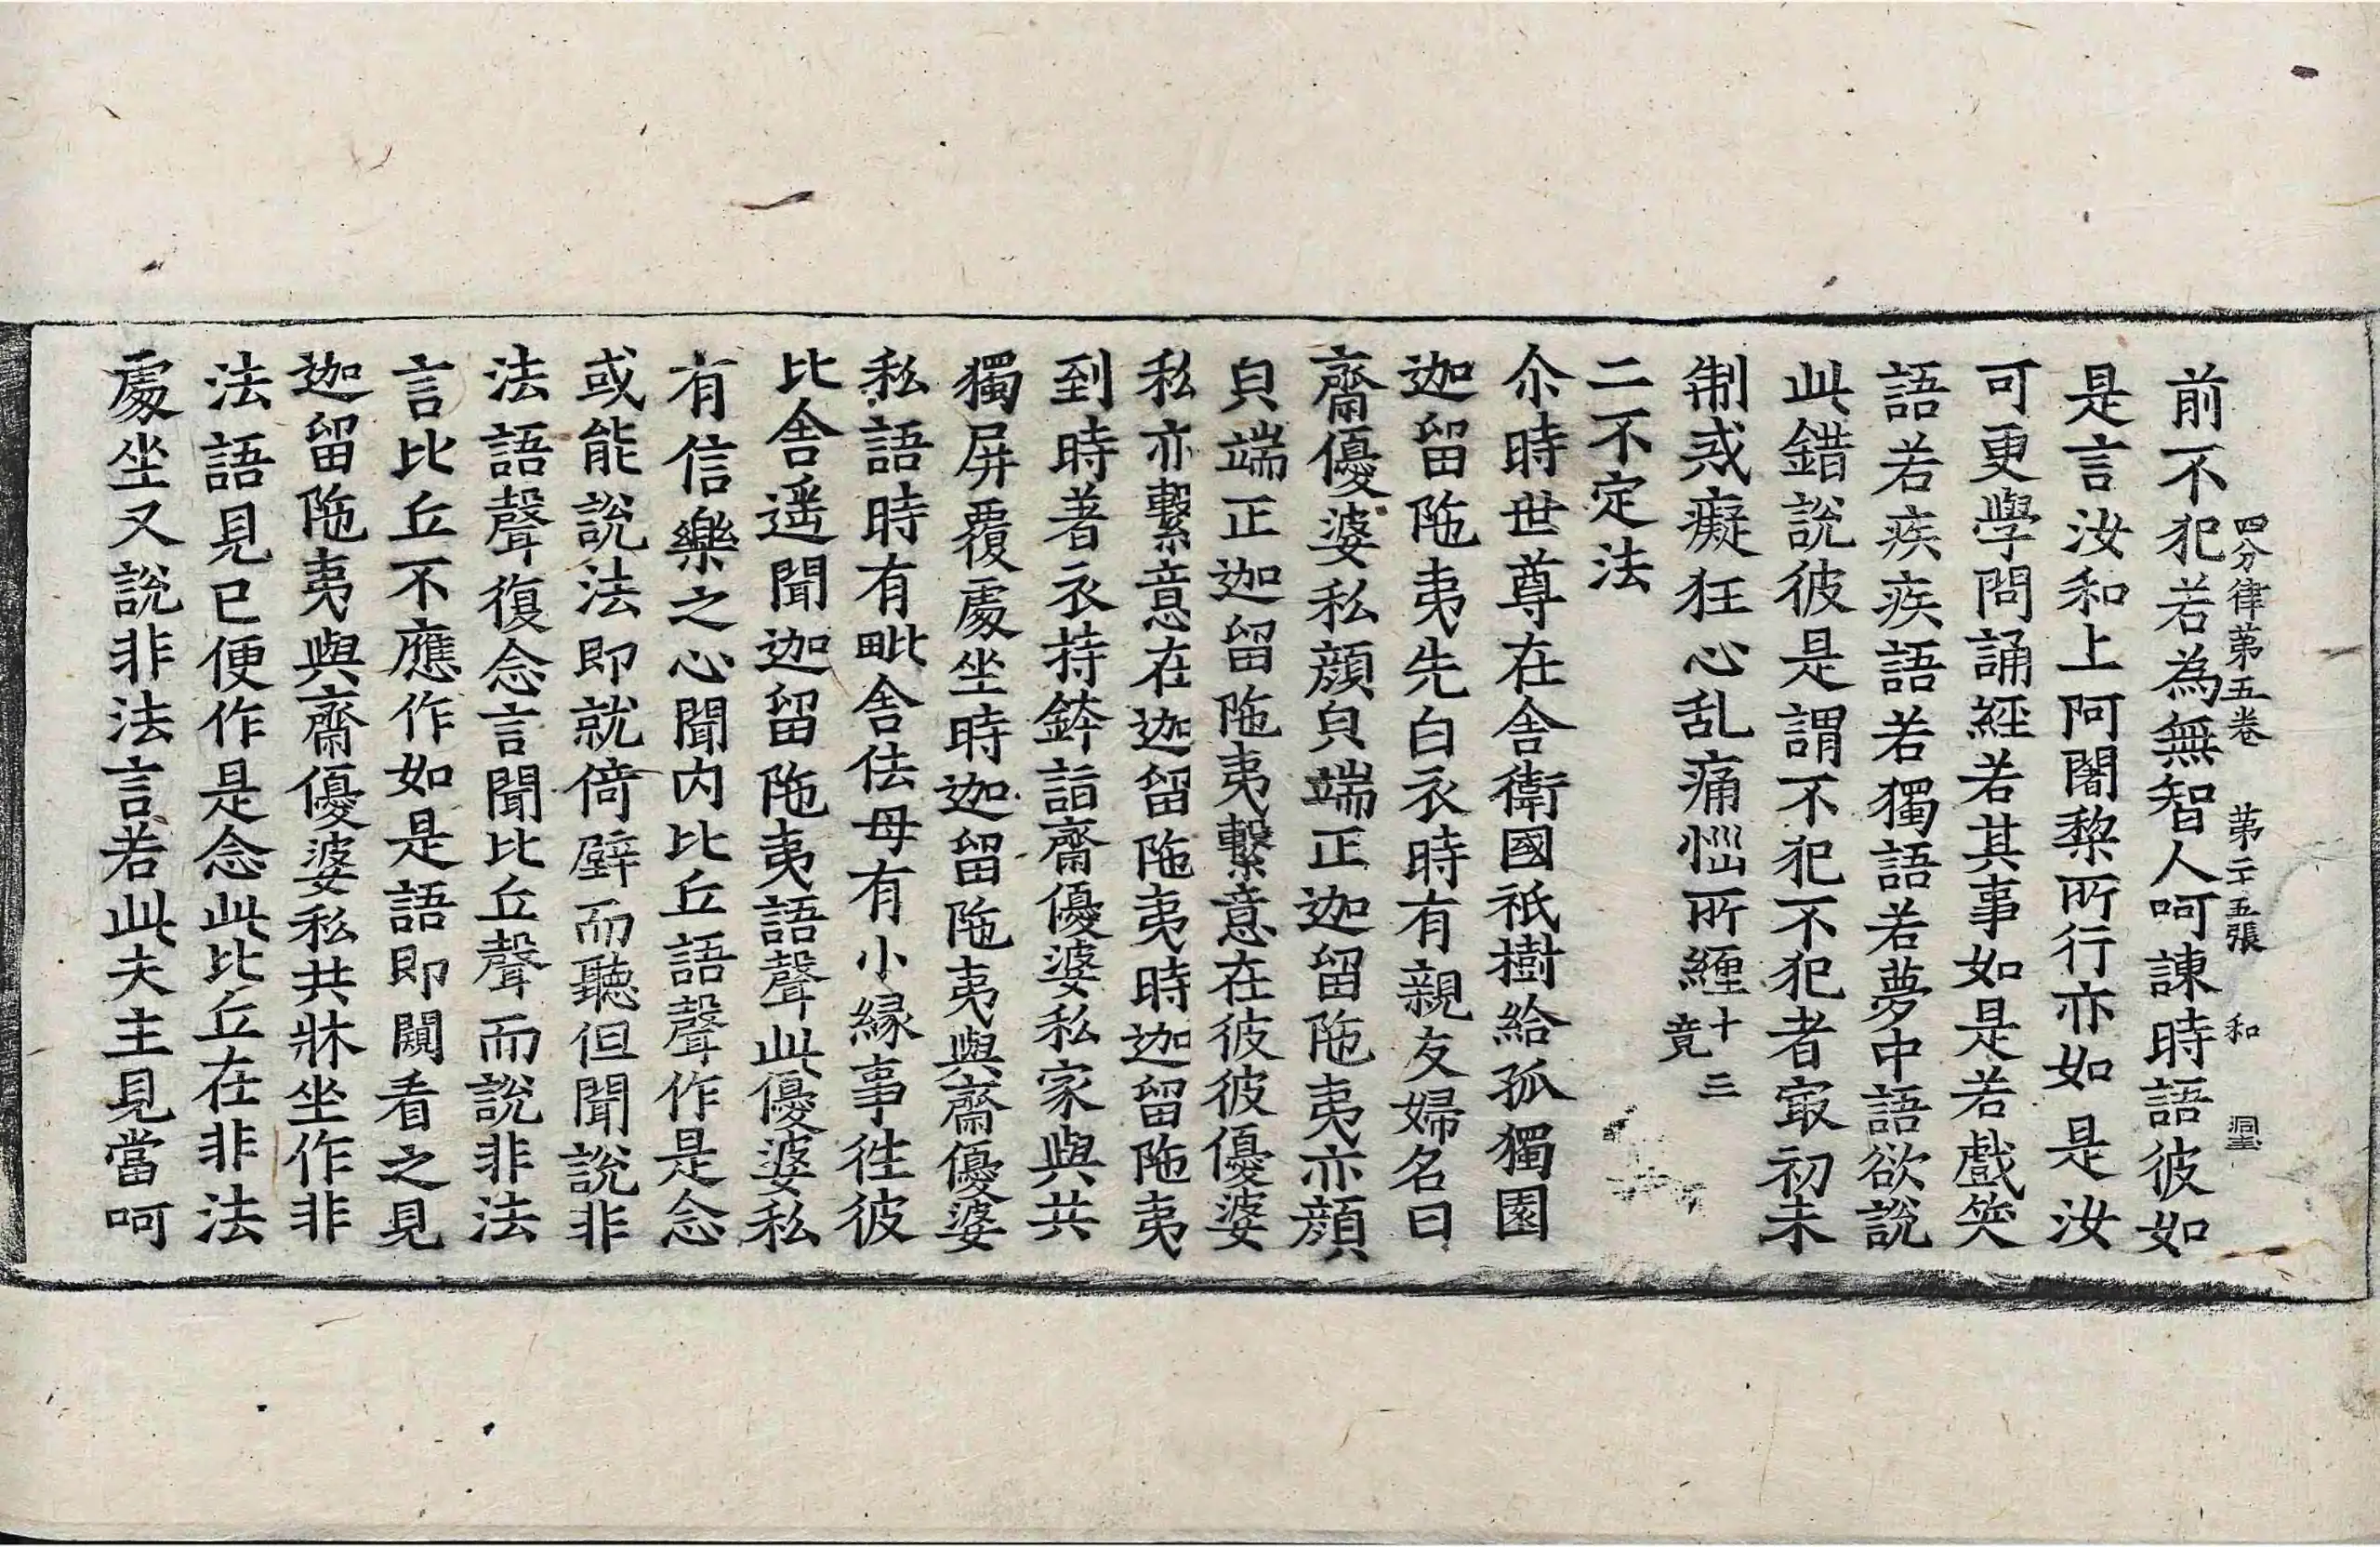 四分律第五卷 第二十五張 和
前不犯若為無智人呵諫時語彼如
是言汝和上阿闍黎所行亦如是汝
可更學問誦經若其事如是若戲笑
語若疾疾語若獨語若夢中語欲說
此錯說彼是謂不犯不犯者㝡初未
制戒癡狂心乱痛惱所纏十三竟
二不定法
尒時世尊在舍衛國祇樹給孤獨園
迦留陁夷先白衣時有親友婦名曰
齋優婆私顔皃端正迦留陁夷亦顔
皃端正迦留陁夷繫意在彼彼優婆
私亦繫意在迦留陁夷時迦留陁夷
到時著衣持鉢詣齋優婆私家與共
獨屏覆處坐時迦留陁夷與齋優婆
私語時有毗舍佉母有小緣事徃彼
比舍遥聞迦留陁夷語聲此優婆私
有信樂之心聞内比丘語聲作是念
或能說法即就倚壁而聽但聞說非
法語聲復念言聞比丘聲而說非法
言比丘不應作如是語即闚看之見
迦留陁夷與齋優婆私共牀坐作非
法語見已便作是念此比丘在非法
處坐又說非法言若此夫主見當呵